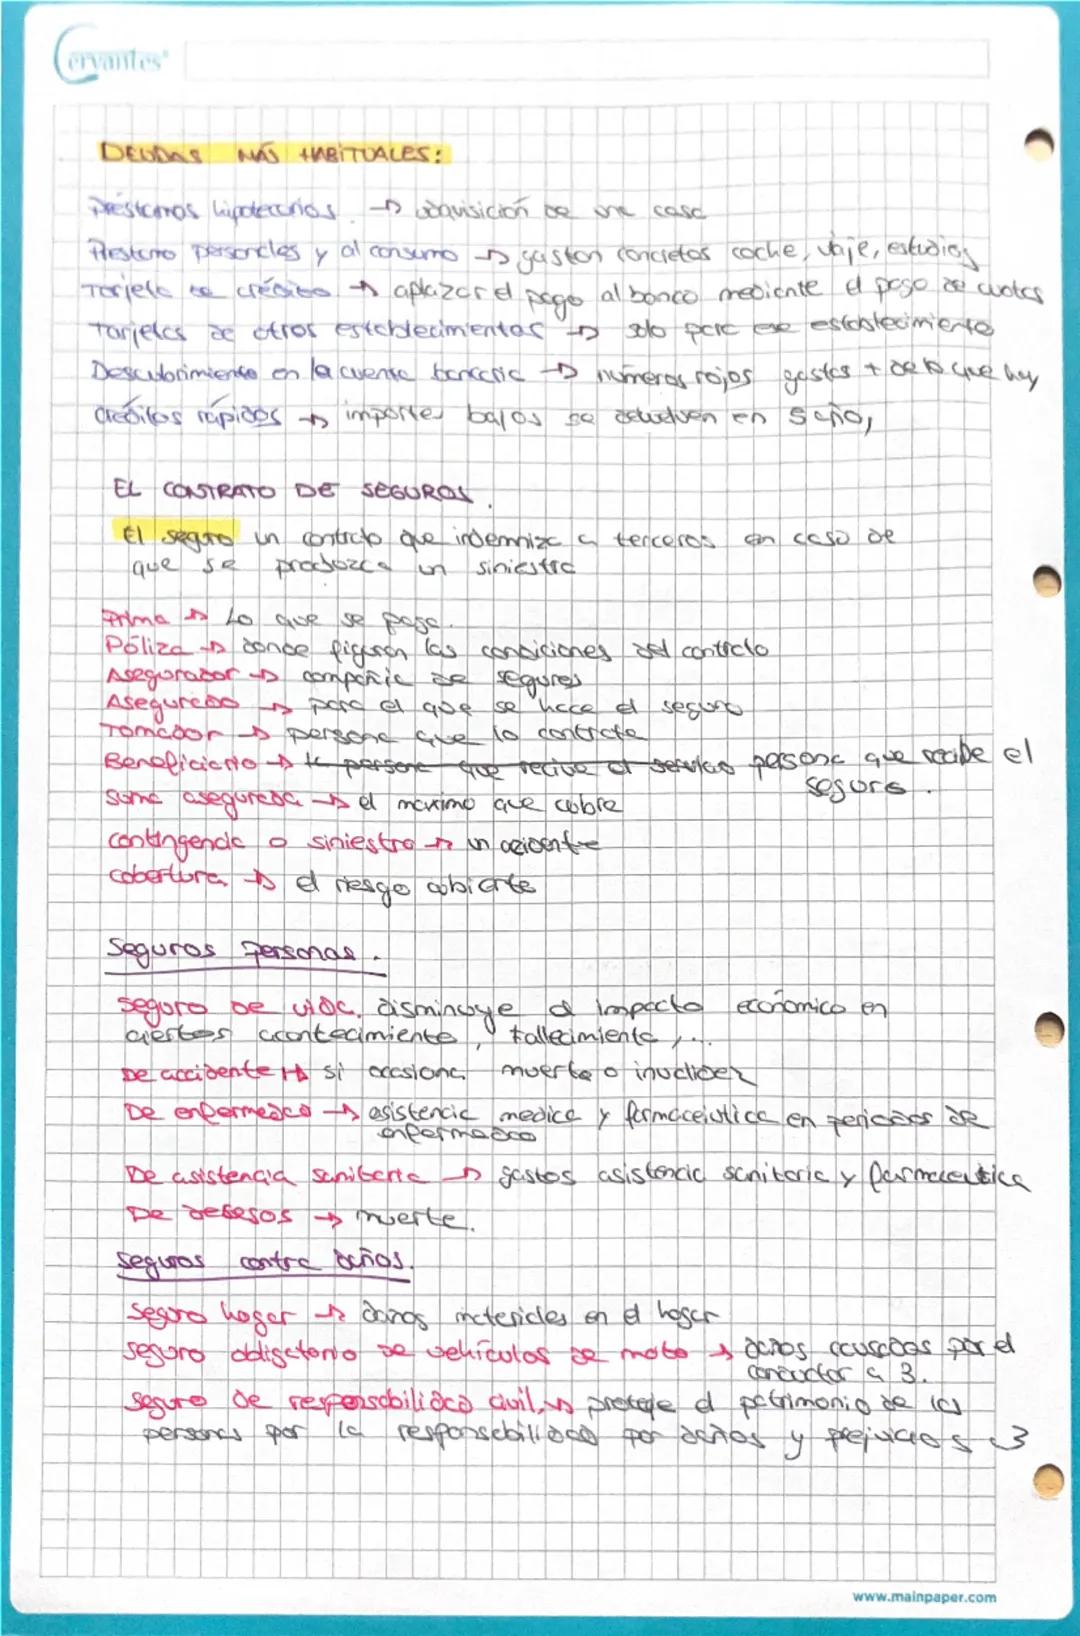 Cervantes
DEUDAS MÁS HABITUALES:
Préstamos hipotecarios. → adquisición de una casa
Préstamo personales y al consumo → gaston concretos coche, viaje, estudios
Tarjeta de crédito → aplazar el pago al banco mediante el pago de cuotas
Tarjetas de otros establecimientos → solo para ese establecimiento
Descubrimiento en la cuenta bancaria → números rojos gastas + de lo que hay
Créditos rápidos → importes bajos se devuelven en 5 años
EL CONTRATO DE SEGUROS.
El seguro un contrato que indemniza a terceros en caso de
que se produzca un siniestro
Prima → Lo que se paga.
Póliza → donde figuran las condiciones del contrato
Asegurador → compañia de seguros
Asegurado → para el que se hace el seguro
Tomador → persona que lo contrata
Beneficiario → la persona que recive el servicio persona que recibe el
seguro.
Suma asegurada → el maximo que cubre
contingencia o siniestro → un acidente
cobertura → el riesgo cubierto
Seguros Personas.
Seguro de vida. disminuye el impacto económico en
ciertos acontecimiento, fallecimiento,...
De accidente → si ocasiona muerte o invalidez
De enfermedad → asistencia medica y farmaceiutica en periodos de
enfermedad
De asistencia sanitaria → gastos asistencia sanitaria y farmaceutica
De decesos → muerte.
Seguros contra daños.
Seguro hogar → daños materiales en el hogar
Seguro obligatorio de vehículos de moto → daños causados por el
conductor a 3.
Seguro de responsabilidad civil. → protege el patrimonio de las
personas por la responsabilidad por daños y prejuicios 3
www.mainpaper.com